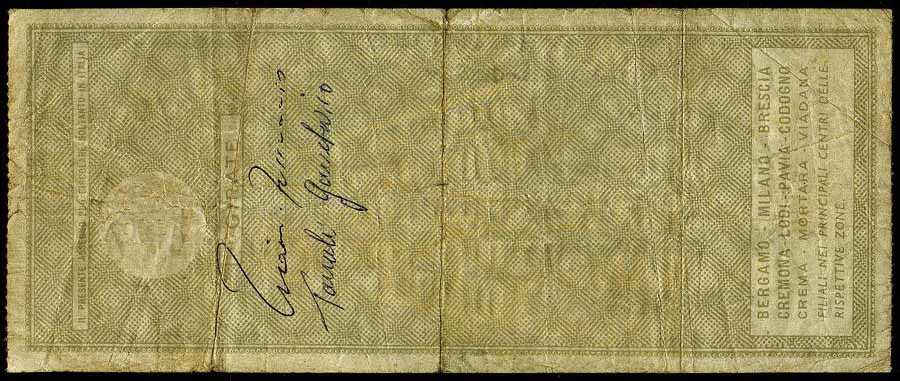 IL PRESENTE ASSEGNO PUÒ CIRCOLARE SOLTANTO IN ITALIA
GIRATE
Tanueli
BERGAMO - MILANO - BRESCIA
CREMONA - LODI - PAVIA - CODOGNO
CREMA - MORTARA - VIADANA
FILIALI NEI PRINCIPALI CENTRI DELLE
RISPETTIVE ZONE.